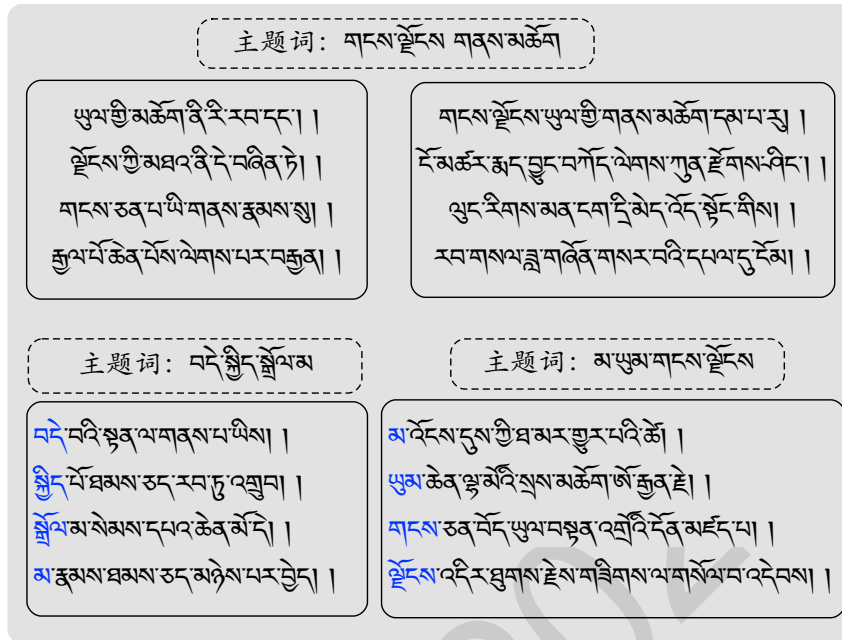 主题词：གངས་ལྗོངས་ གནས་མཆོག
ཡུལ་གྱི་མཆོག་ནི་རི་རབ་དང་། །
ལྗོངས་ཀྱི་མཐའ་ནི་དེ་བཞིན་ཏེ། །
གངས་ཅན་པ་ཡི་གནས་རྣམས་སུ། །
རྒྱལ་པོ་ཆེན་པོས་ལེགས་པར་བརྒྱན། །
གངས་ལྗོངས་ཡུལ་གྱི་གནས་མཆོག་དམ་པ་རུ། །
ངོ་མཚར་རྨད་བྱུང་བཀོད་ལེགས་ཀུན་རྫོགས་ཤིང་། །
ལུང་རིགས་མན་ངག་དྲི་མེད་འོད་སྟོང་གིས། །
རབ་གསལ་ཟླ་གཞོན་གསར་བའི་དཔལ་དུ་ངོམ། །
主题词：བདེ་སྐྱིད་སྒྲོལ་མ
བདེ་བའི་སྟན་ལ་གནས་པ་ཡིས། །
སྐྱིད་པོ་ཐམས་ཅད་རབ་ཏུ་འགྲུབ། །
སྒྲོལ་མ་སེམས་དཔའ་ཆེན་མོ་དེ། །
མ་རྣམས་ཐམས་ཅད་མཉེས་པར་བྱེད། །
主题词：མ་ཡུམ་གངས་ལྗོངས
མ་འོངས་དུས་ཀྱི་ཐ་མར་གྱུར་པའི་ཚེ། །
ཡུམ་ཆེན་ལྷ་མོའི་སྲས་མཆོག་ཨོ་རྒྱན་རྗེ། །
གངས་ཅན་བོད་ཡུལ་བསྟན་འགྲོའི་དོན་མཛད་པ། །
ལྗོངས་འདིར་ཐུགས་རྗེས་གཟིགས་ལ་གསོལ་བ་འདེབས། །